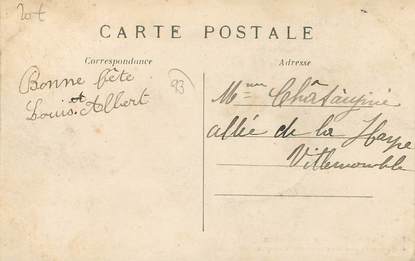 CARTE POSTALE
Correspondance
Adresse
Bonne fête
Louis et Albert
93
Mme
allée de la Harpe
Villemomble